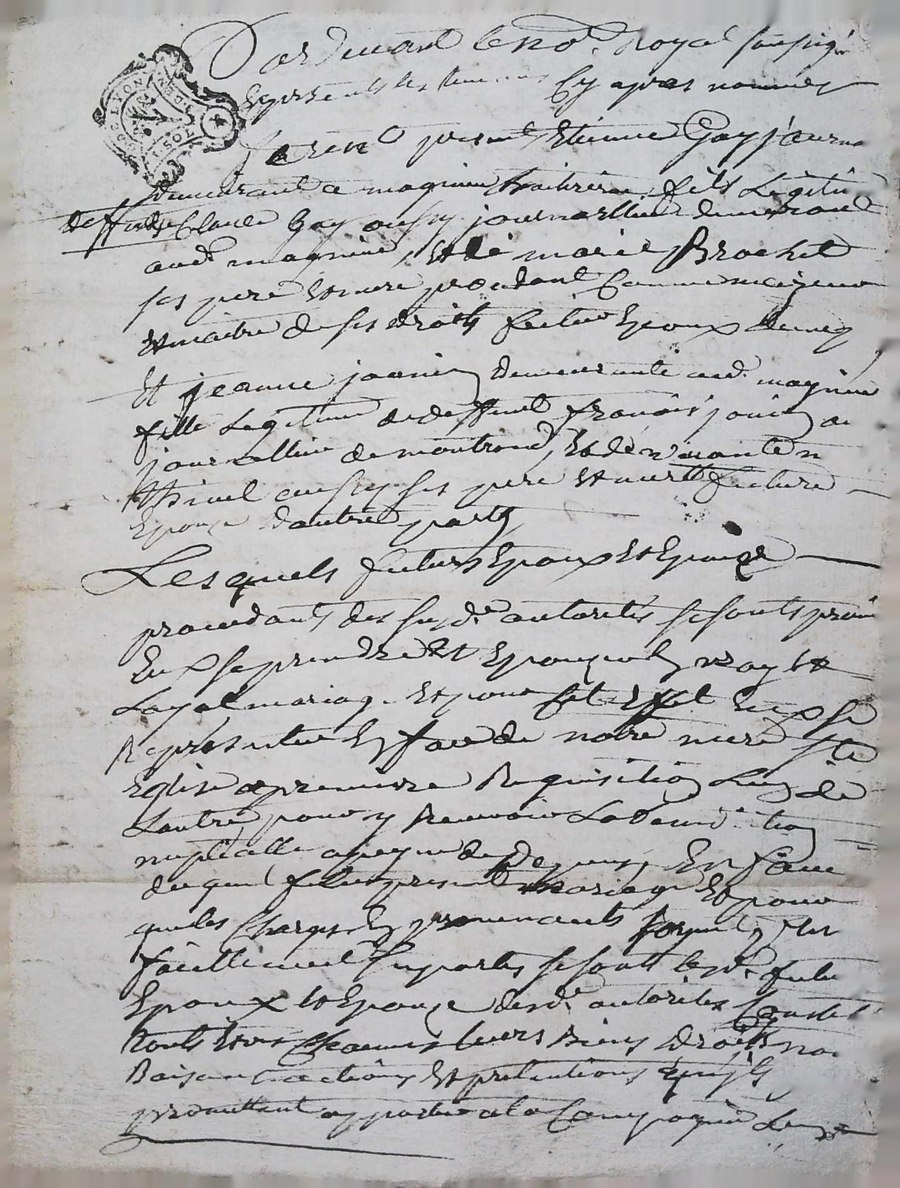 DE LYON
1 SOL
Pardevant le no.re Royal soussigné
Et présents les temoins Cy apres nommés
furent presents Etienne Gay journa
demeurant a magnieu fils Legiti
deffunt de Claude Gay aussy journallier demeurant
aud. magnieu, Et de marie Brochet
ses pere et mere procedant Comme majeur
Et maitre de ses droits futur Epoux dune p
Et jeanne janin demeurante aud. magnieu
fille Legitime de deffunt francois janin
journallier de montrond, Et de
aussy ses pere Et mere future
Epouze d'autre part
Lesquels futurs Epoux Et Epouze
procedants des susd. autorités se sont promis
Eux se prendre Et Epouzer En vray Et
Loyal mariage Et pour cet Effet Eux se
Representer En face de notre mere ste
Eglise a premiere Requisition Lun de
Lautre pour y Recevoir La Benediction
nuptialle a peyne de depens, En faveur
duquel futur present mariage Et pour
que les Charges En provenants
facillement suportés se sont lesd. futu
Epoux Et Epouze desd. autorités Const
touts Et un Chacuns leurs Biens droits nom
Raisons actions Et pretentions
promettant apporter a la Compagnie Lun